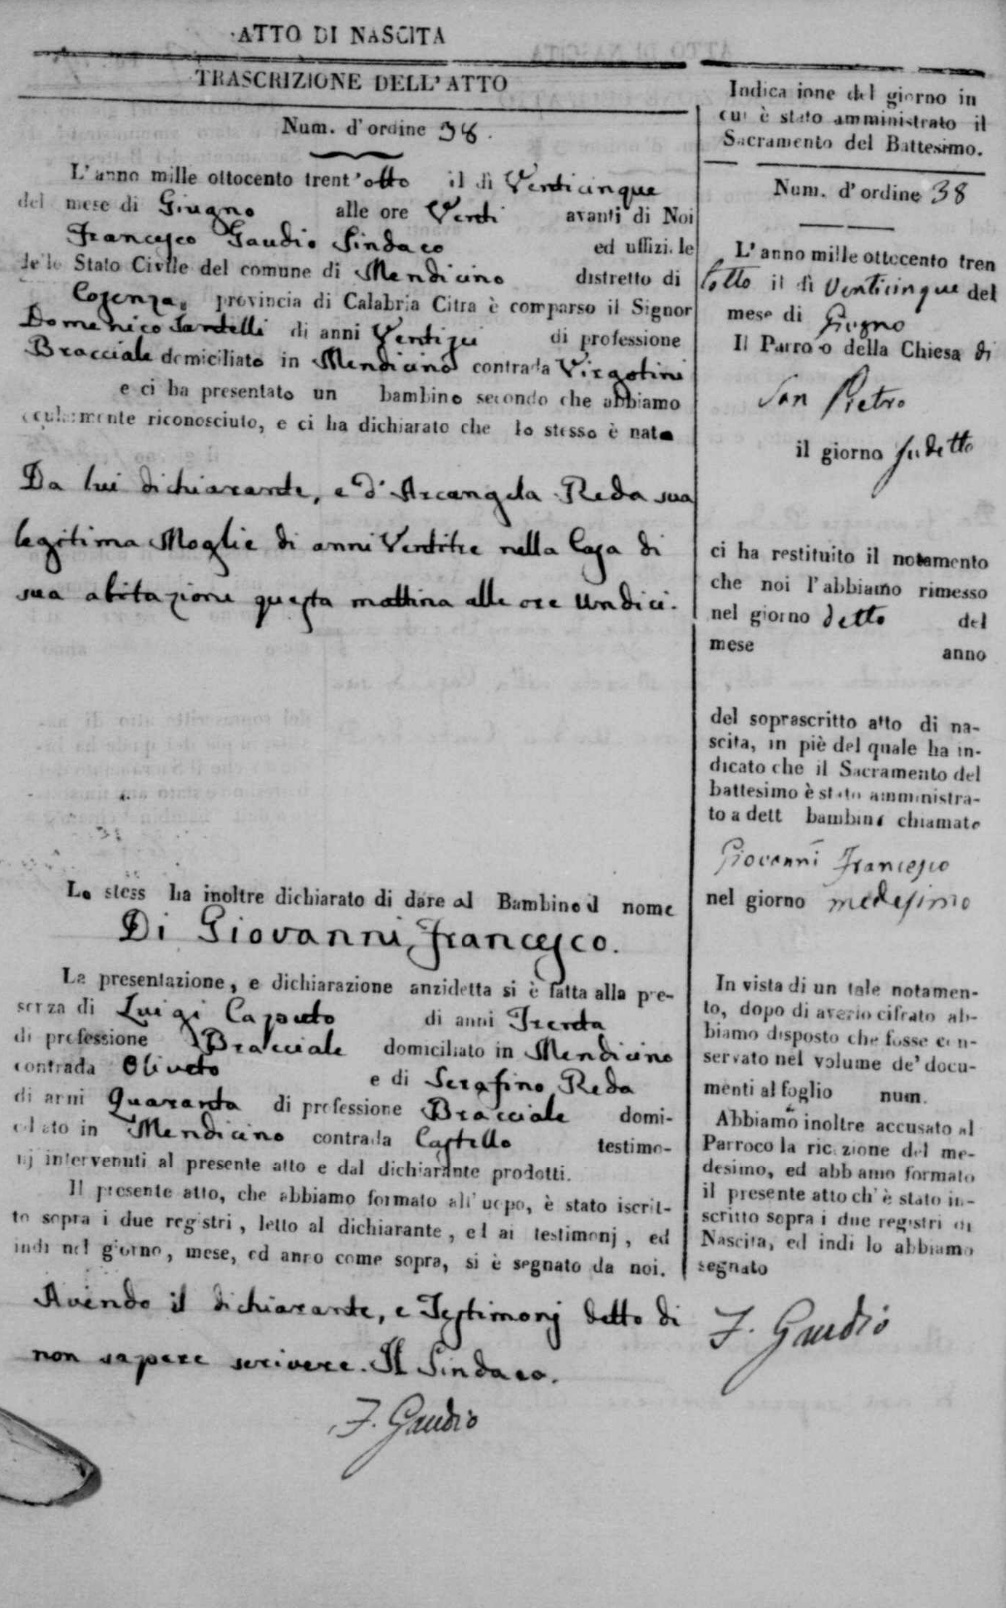 ATTO DI NASCITA
TRASCRIZIONE DELL'ATTO
Num. d'ordine 38.
L'anno mille ottocento trent'otto il dì Venticinque
del mese di Giugno alle ore Venti avanti di Noi
Francesco Gaudio Sindaco ed uffiziale
dello Stato Civile del comune di Mendicino distretto di
Cosenza, provincia di Calabria Citra è comparso il Signor
Domenico di anni Ventisei di professione
Bracciale domiciliato in Mendicino contrada
e ci ha presentato un bambino secondo che abbiamo
ocularmente riconosciuto, e ci ha dichiarato che lo stesso è nato
Da lui dichiarante, e d'Arcangela Reda sua
legitima Moglie di anni Ventitre nella Casa di
sua abitazione questa mattina alle ore Undici.
Lo stess ha inoltre dichiarato di dare al Bambino il nome
Di Giovanni Francesco.
La presentazione, e dichiarazione anzidetta si è fatta alla pre-
senza di Luigi Caputo di anni Trenta
di professione Bracciale domiciliato in Mendicino
contrada Oliveto e di Serafino Reda
di anni Quaranta di professione Bracciale domi-
ciliato in Mendicino contrada Castello testimo-
nj intervenuti al presente atto e dal dichiarante prodotti.
Il presente atto, che abbiamo formato all'uopo, è stato iscrit-
to sopra i due registri, letto al dichiarante, ed ai testimonj, ed
indi nel giorno, mese, ed anno come sopra, si è segnato da noi.
Avendo il dichiarante, e Testimonj detto di
non sapere scrivere. Il Sindaco.
F. Gaudio
Indicazione del giorno in
cui è stato amministrato il
Sacramento del Battesimo.
Num. d'ordine 38
L'anno mille ottocento tren
totto il dì Venticinque del
mese di Giugno
Il Parroco della Chiesa di
San Pietro
il giorno sudetto
ci ha restituito il notamento
che noi l'abbiamo rimesso
nel giorno detto del
mese anno
del soprascritto atto di na-
scita, in piè del quale ha in-
dicato che il Sacramento del
battesimo è stato amministra-
to a dett bambino chiamato
Giovanni Francesco
nel giorno medesimo
In vista di un tale notamen-
to, dopo di averlo cifrato ab-
biamo disposto che fosse con-
servato nel volume de' docu-
menti al foglio num.
Abbiamo inoltre accusato al
Parroco la ricezione del me-
desimo, ed abbiamo formato
il presente atto ch'è stato in-
scritto sopra i due registri di
Nascita, ed indi lo abbiamo
segnato
F. Gaudio